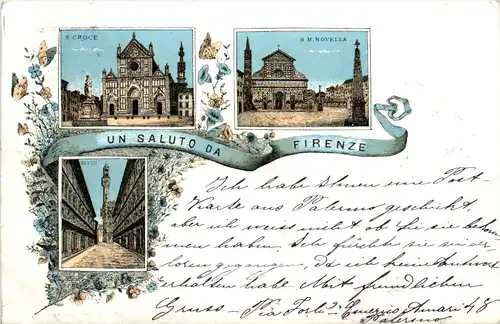 S. CROCE
S. M. NOVELLA
UN SALUTO DA FIRENZE
Ich habe Ihnen eine Post-
Karte aus Palermo geschickt,
aber ich weiss nicht ob Sie sie bekom
men haben. Ich fürchte sie sei ver
loren gegangen, da ich keine Antwort
erhalten habe. Mit freundlichen
Gruss - Via Emerico Amari 48
Palermo